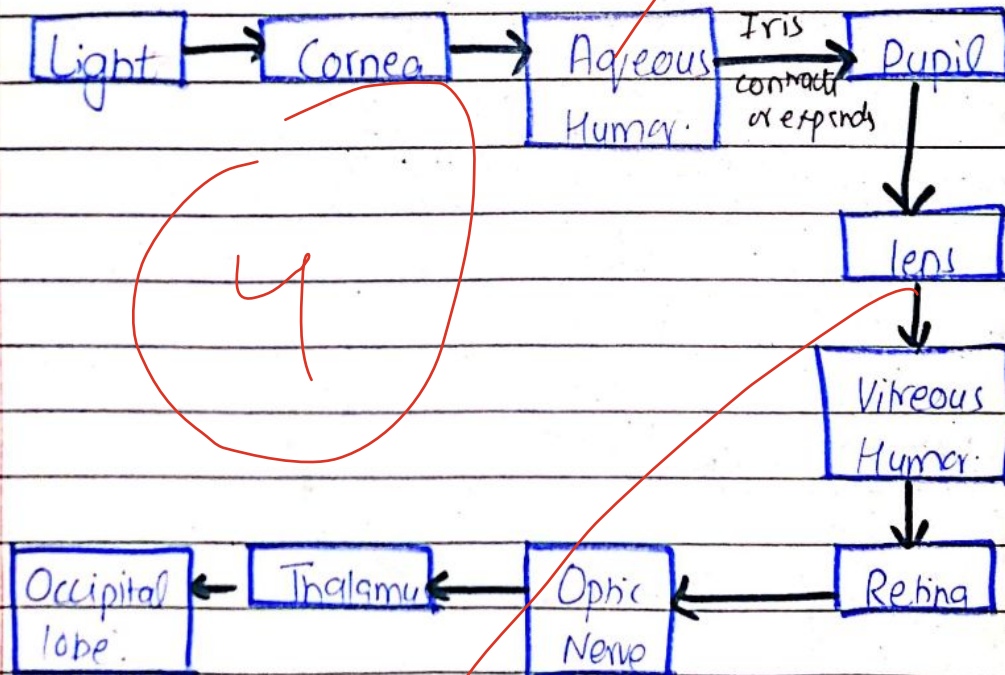 Light
Cornea
Aqeous
Humor.
Iris
contracts
or expands
Pupil
lens
Vitreous
Humor.
Retina
Optic
Nerve
Thalamus
Occipital
lobe.
4